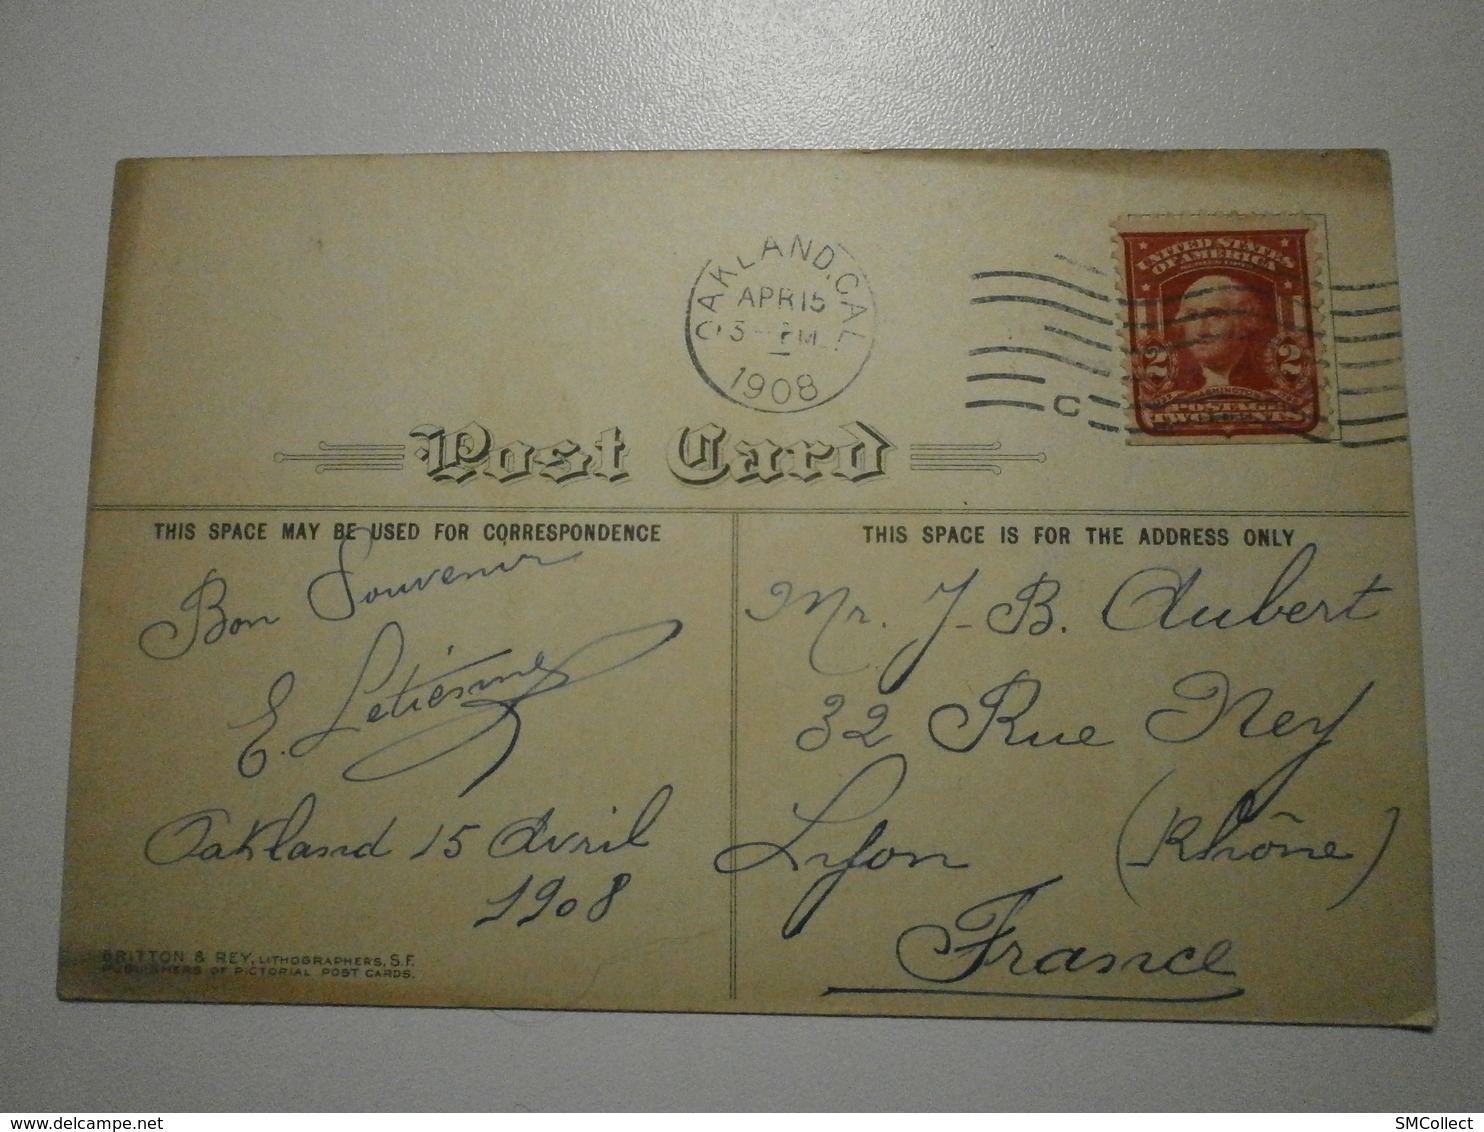 OAKLAND, CAL.
APR 15
1908
C
UNITED STATES
OF AMERICA
2 2
WASHINGTON
POSTAGE
TWO CENTS
Post Card
THIS SPACE MAY BE USED FOR CORRESPONDENCE
Bon Souvenir
E. Letienne
Oakland 15 Avril
1908
BRITTON & REY, LITHOGRAPHERS, S.F.
PUBLISHERS OF PICTORIAL POST CARDS.
THIS SPACE IS FOR THE ADDRESS ONLY
Mr. J-B. Aubert
32 Rue Ney
Lyon (Rhône)
France
delcampe.net
SMCollect